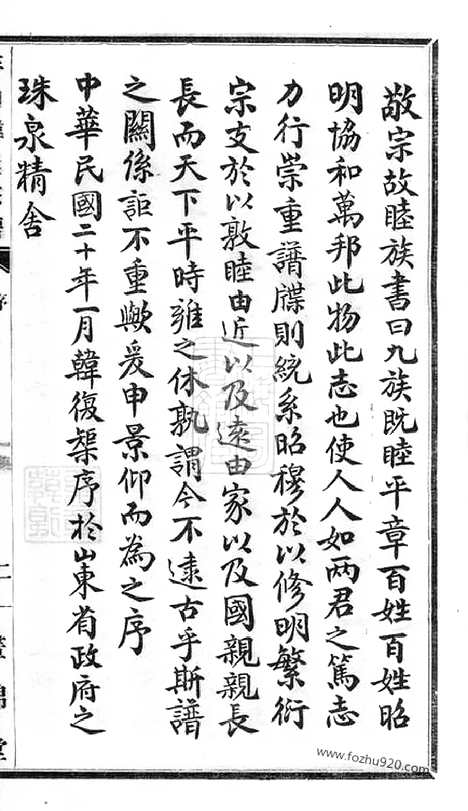 敬宗故睦族書曰九族既睦平章百姓百姓昭
明協和萬邦此物此志也使人人如两君之篤志
力行崇重譜牒則統系昭穆於以修明繁衍
宗支於以敦睦由近以及遠由家以及國親親長
長而天下平時雍之休孰謂今不逮古乎斯譜
之關係詎不重歟爰申景仰而為之序
中華民國二十年一月韓復榘序於山東省政府之
珠泉精舍
序
二
堂
www.fozhu920.com